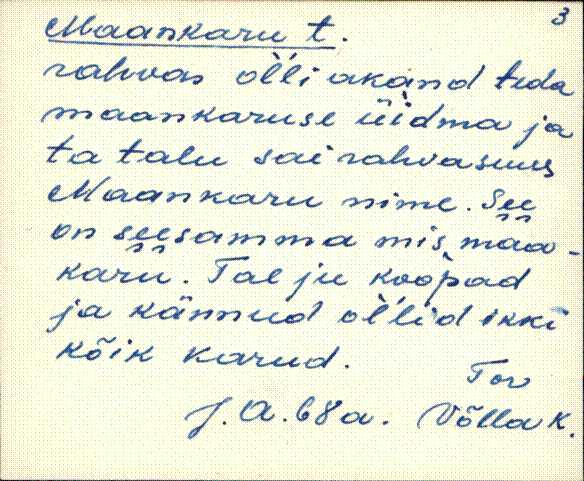 3
Maankaru t.
rahvas ol̀li akànd teda
maankaruse üìdma ja
ta talu sai rahvasuus
Maankaru nime. See
on seesamma mis maa-
karu. Tal ju koòpad
ja kännud ol̀lid ikki
kõik karud.
Tor
J. A. 68 a. Võlla k.